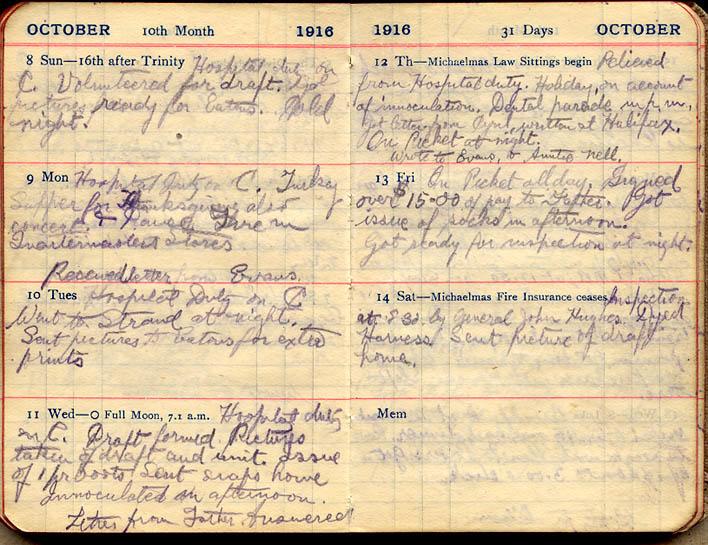 OCTOBER 10th Month 1916
8 Sun—16th after Trinity Hospital duty on
C. Volunteered for draft. Got
pictures ready for Eatons. Cold
night.
9 Mon Hospital Duty on C. Turkey
Supper for Thanksgiving also
concert. & Fire in
Quartermasters stores
Received letter from Evans.
10 Tues Hospital Duty on C
Went to Strand at night.
Sent pictures to Eatons for extra
prints
11 Wed—O Full Moon, 7.1 a.m. Hospital duty
on C. Draft formed Pictures
taken of draft and unit. issue
of 1 pr boots Sent snaps home
Innoculated in afternoon.
Letter from Father. Answered
1916 31 Days OCTOBER
12 Th—Michaelmas Law Sittings begin Relieved
from Hospital duty. Holiday, on account
of innoculation. Dental parade in p.m.
Got letter from Cyril, written at Halifax.
On Picket at night.
Wrote to Evans, to Auntie Nell.
13 Fri On Picket all day, Signed
over $15-00 of pay to Father. Got
issue of socks in afternoon.
Got ready for inspection at night.
14 Sat—Michaelmas Fire Insurance ceases Inspection
at 8 30 by General John Hughes.
Harness Sent picture of draft
home.
Mem